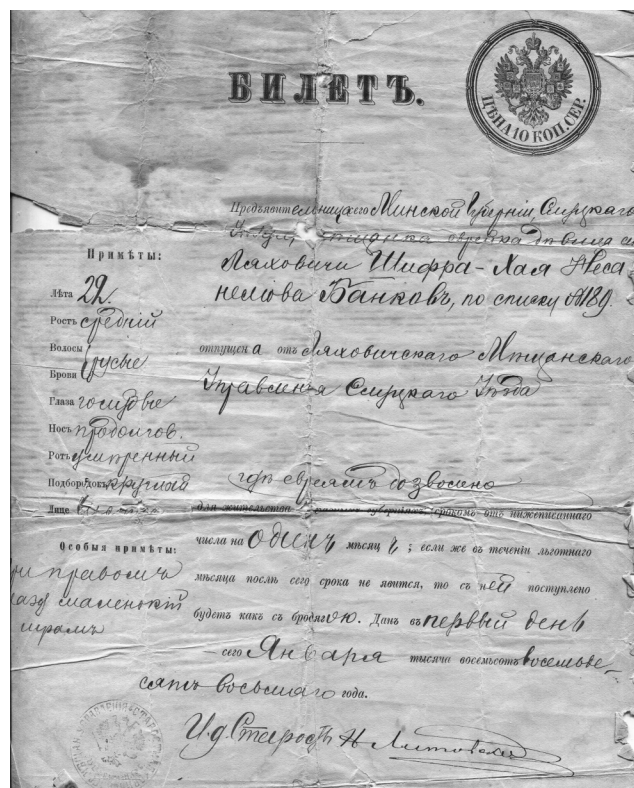 БИЛЕТЪ.
ЦѢНА 10 КОП. СЕР.
Предъявительница сего Минской Губерніи, Слуцкаго
Уѣзда, мѣщанка еврейка
Ляховичи Шифра-Хая Неса-
неліова Банковъ, по списку №189.
отпущена отъ Ляховичскаго Мѣщанскаго
Управленія Слуцкаго Уѣзда
гдѣ евреямъ дозволено
для жительства въ разныхъ губерніяхъ, срокомъ отъ нижеписаннаго
числа на одинъ мѣсяцъ; если же въ теченіи льготнаго
мѣсяца послѣ сего срока не явится, то съ ней поступлено
будетъ какъ съ бродягою. Данъ въ первый день
сего Января тысяча восемьсотъ восемьде-
сятъ восьмаго года.
И. д. Старосты
Примѣты:
Лѣта 22.
Ростъ средній
Волосы
Брови русые
Глаза голубые
Носъ продолгов.
Ротъ умѣренный
Подбородокъ круглый
Лице
Особыя примѣты:
при правомъ
глазу маленькій
шрамъ